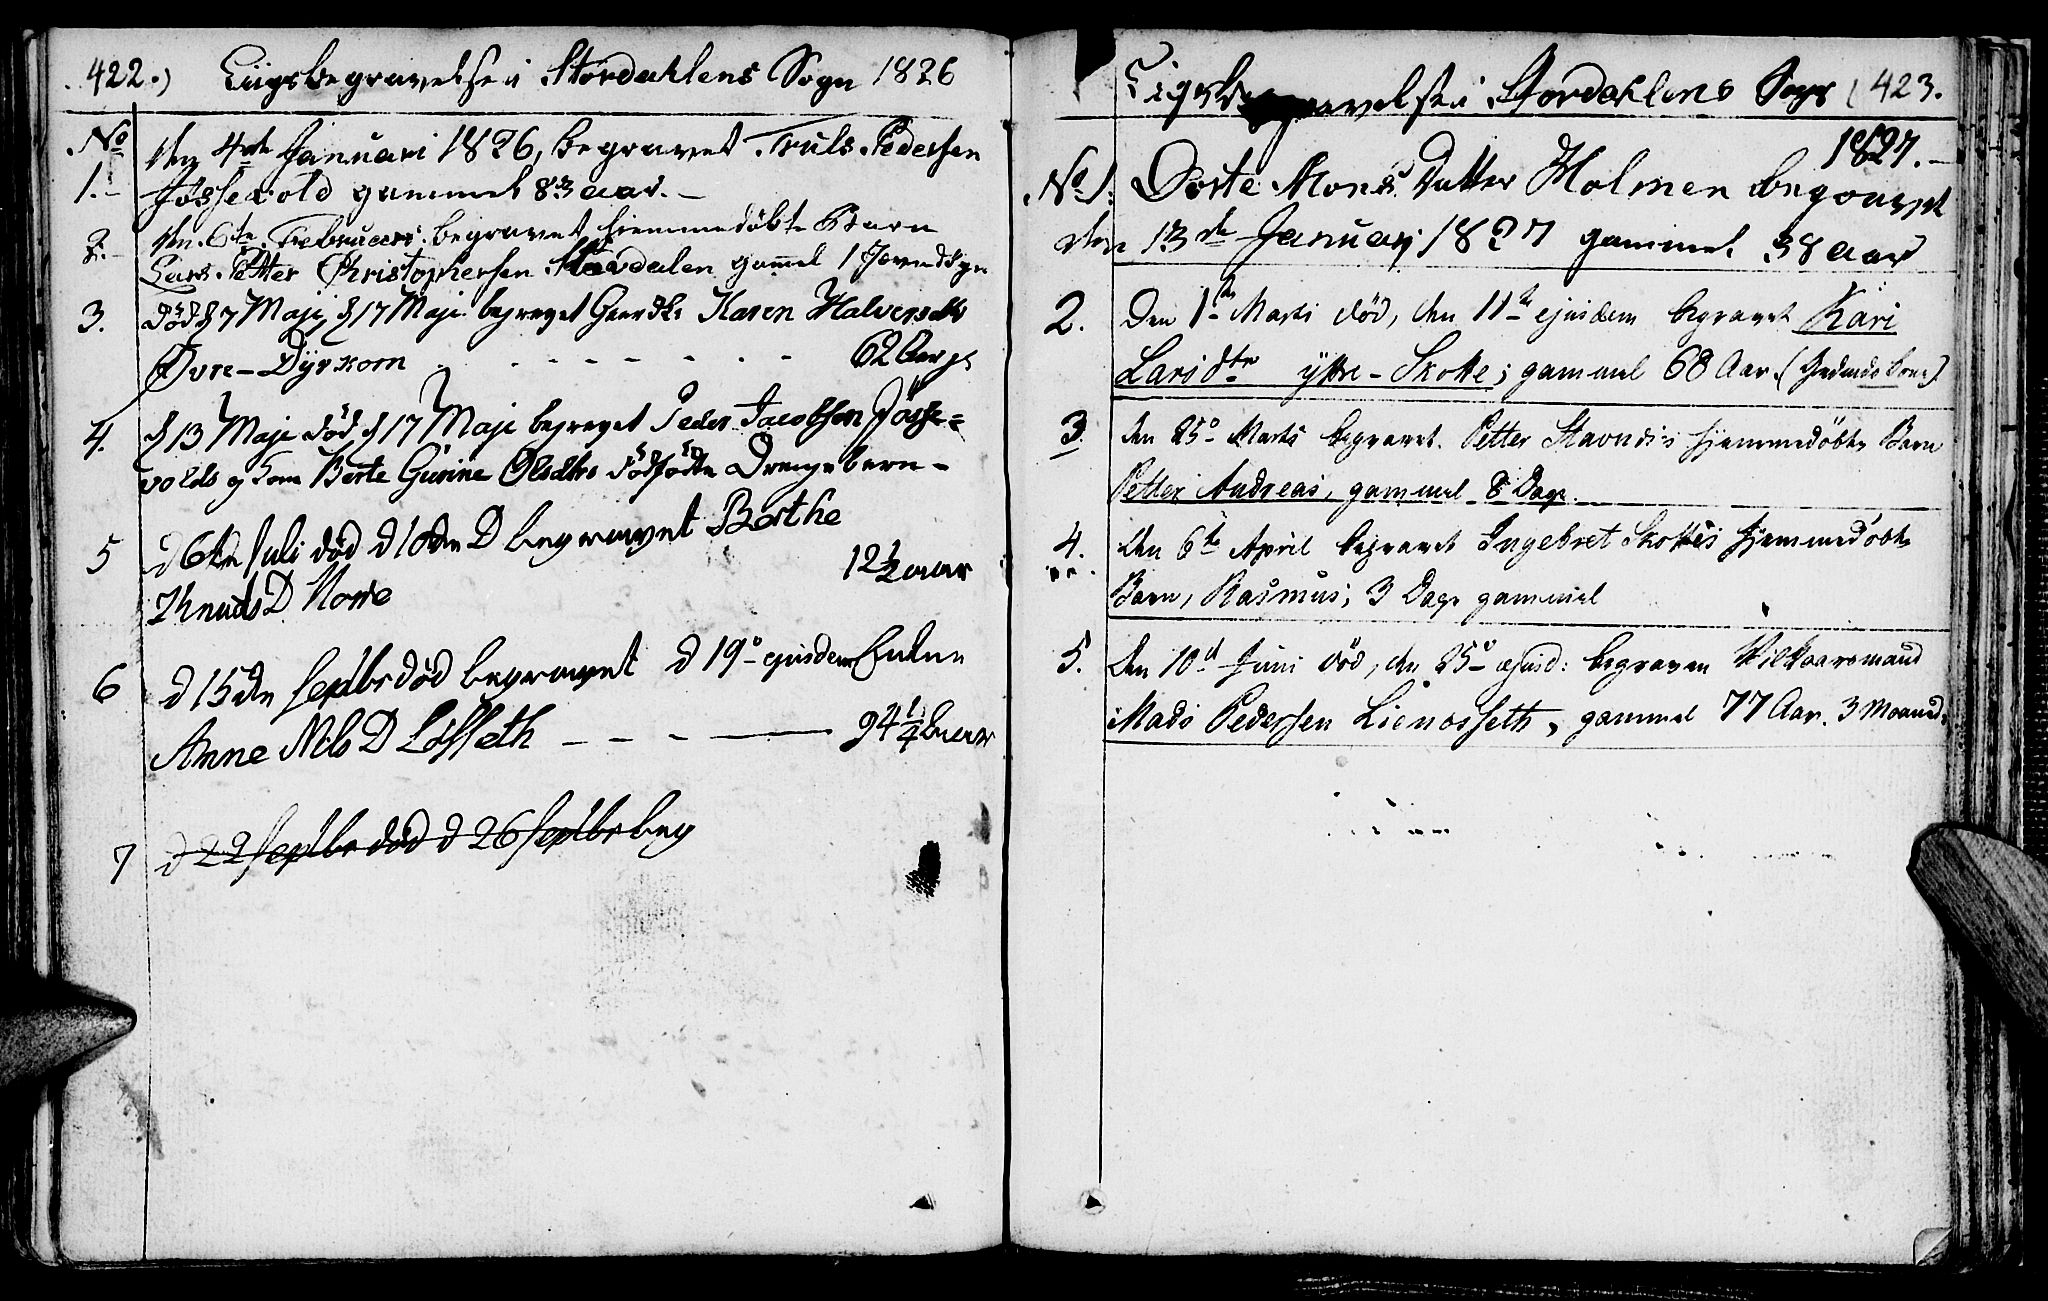 422.) Liigsbegravelse i Stordahlens Sogn 1826
No den 4de Januari 1826, begravet Truls Pedersen
1.- Jössevold gammel 83 aar. -
2.- den 6te Februarii begravet hiemmedöbte Barn
Lars Petter Christophersen Stavdalen gam̄el 1 Jevndøgn
3. död d 7 Maji, d 17 Maji begravet Karen Halversdtr
Øvre-Dyrkorn - - - - - - 62 Aar gl
4. d 13 Maji död d 17 Maji begravet Peder Jacobsen Jösse=
volds og Kone Berte Gurine Olsdtrs dödfödte Drengebarn -
5 d 6te Juli död d 10de D begravet Berthe
Knuds D Norre 12½ aar
6 d 15de Septbr död begravet d 19º ejusdem Enken
Anne Nils D Löfseth - - - - 94¼ aar
7 d 22 Septbr död d 26 Septbr beg
Ligsbegravelse i Stordahlens Sogn (423.
1827. -
No 1. Dorte Mons Datter Holmen begravet
den 13de Januarj 1827 gammel 38 aar
2. Den 1ste Marti död, den 11te ejusdem begravet Kari
Larsdtr ytre-Skotte; gammel 68 Aar.
3 den 25º Marti begravet Petter Stavnesis hjemmedöbte Barn
Petter Andreas, gammel 8 Dage. -
4. den 6te April begravet Ingebret Skottes hjemmedöbte
Barn, Rasmus; 3 Dage gammel
5. den 10d Juni död, den 25º ejusd: begraven Vilkaarsmand
Mads Pedersen Lienosseth, gammel 77 Aar. 3 Maaned.